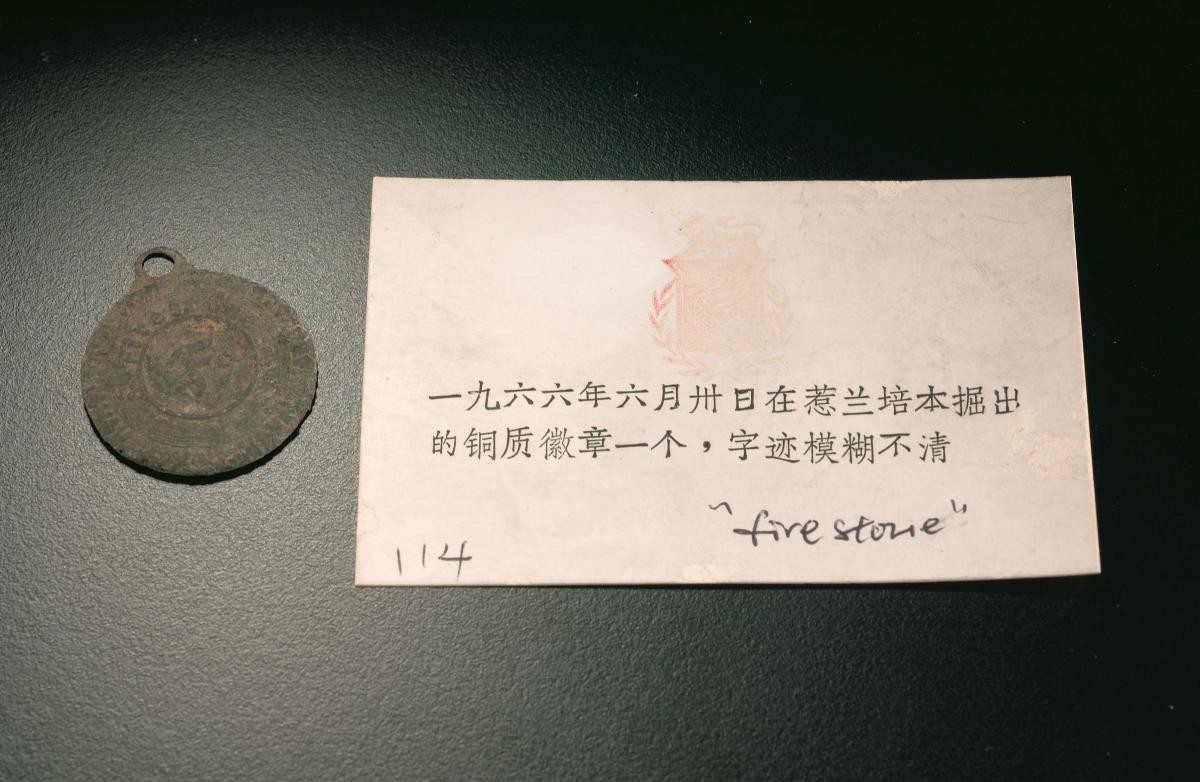 一九六六年六月卅日在惹兰培本掘出
的铜质徽章一个，字迹模糊不清
"fire stone"
114